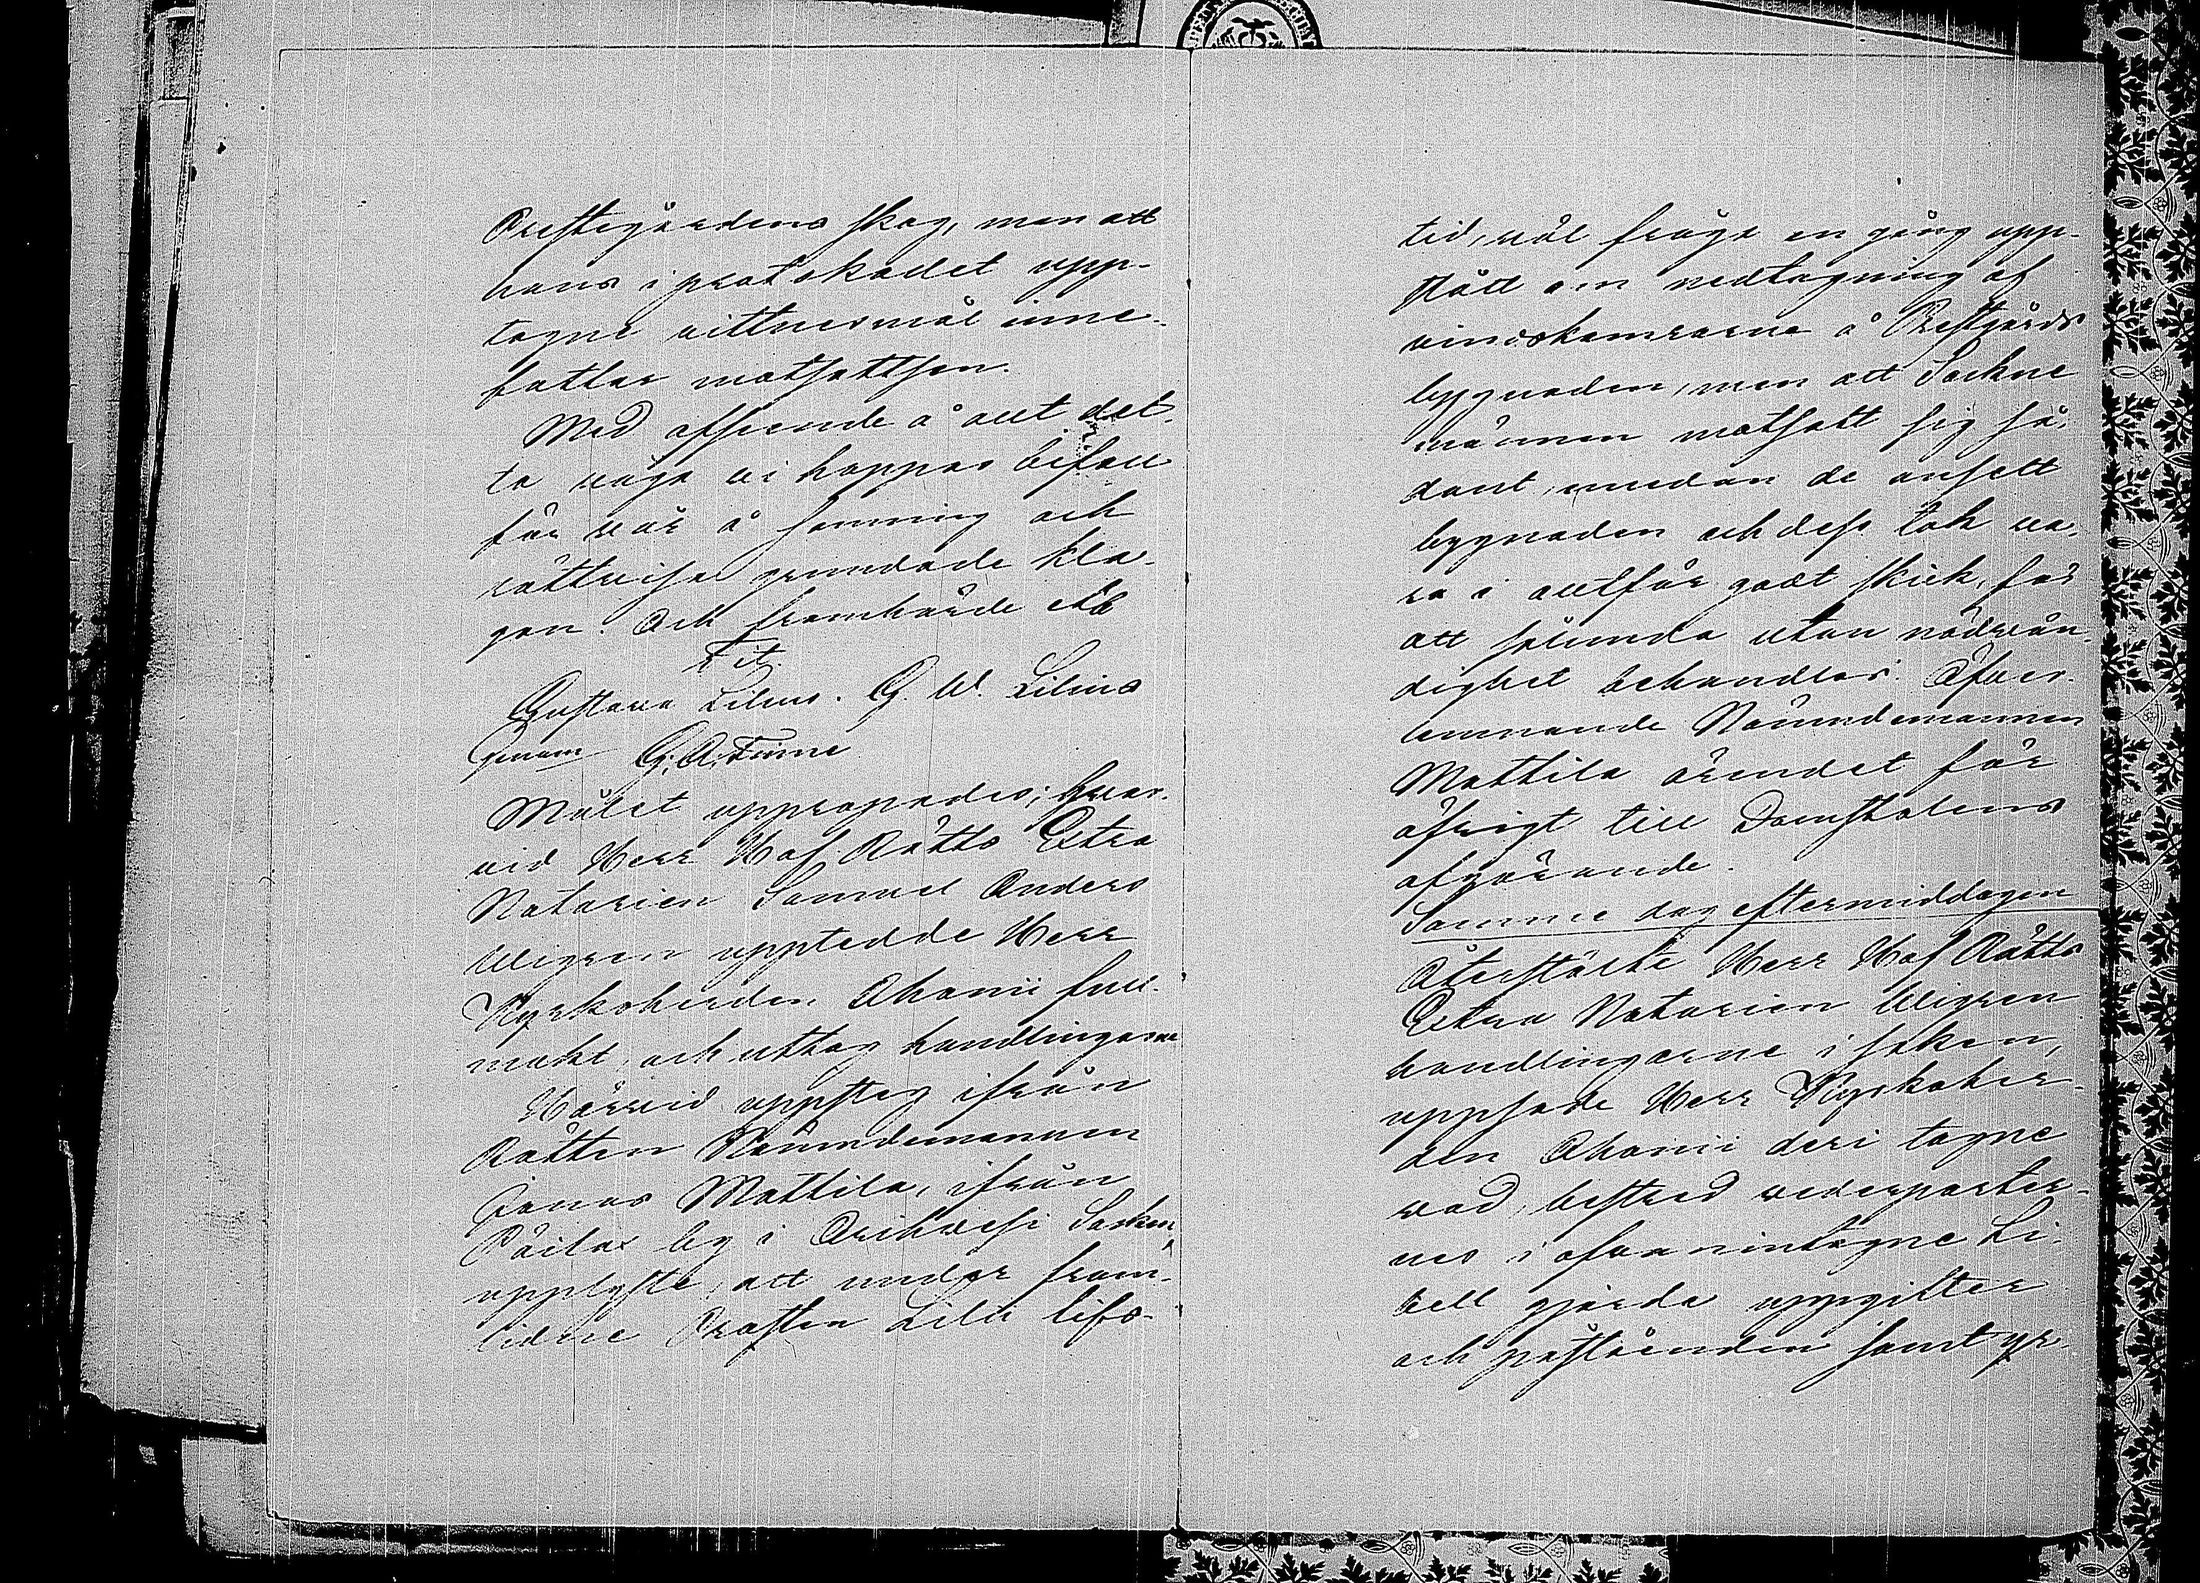 Prestegårdens skog, men att
hans i protokollet upp-
tagne vittnesmål inne-
fattar motsattsen.
Med afseende å allt det-
ta våga vi hoppas bifall
för vår å sanning och
rättvisa grundade kla-
gan. Och framhärde etc
Tit.
Gustava Lilius. G. W. Lilius
Genom G. A. Finne
Målet uppropades; hvar-
vid Herr Hof Rätts Extra
Notarien Samuel Anders
Wigren uppteedde Herr
Kyrkoherden Ahonii full-
makt, och uttog handlingarne
Härvid uppsteg ifrån
Rätten Nämndemannen
Jonas Mattila, ifrån
by i Orihvesi Sockn
upplyste, att under fram-
lidne Prosten Lilii lifs-
tid, väl fråga en gång upp-
stått om nedtagning af
vindskamrarne å Prestgårds
bygnaden, men att Sockne
männen motsatt sig så-
dant, medan de ansett
bygnaden och dess tak va-
ra i alltför godt skick, för
att sålunda utan nödvän-
dighet behandlas. Öfver-
lemnande Nämndemannen
Mattila ärendet för
öfrigt till Domstolens
afgörande.
Samme dag eftermiddagen
Återstälte Herr Hof Rätts
Extra Notarien Wigren
handlingarne i saken,
uppsade Herr Kyrkoher-
den Ahonii deri tagne
vad, bestred vederparter-
nes i ofvan intagne Li-
bell gjorda uppgifter
och påståenden samt yr-